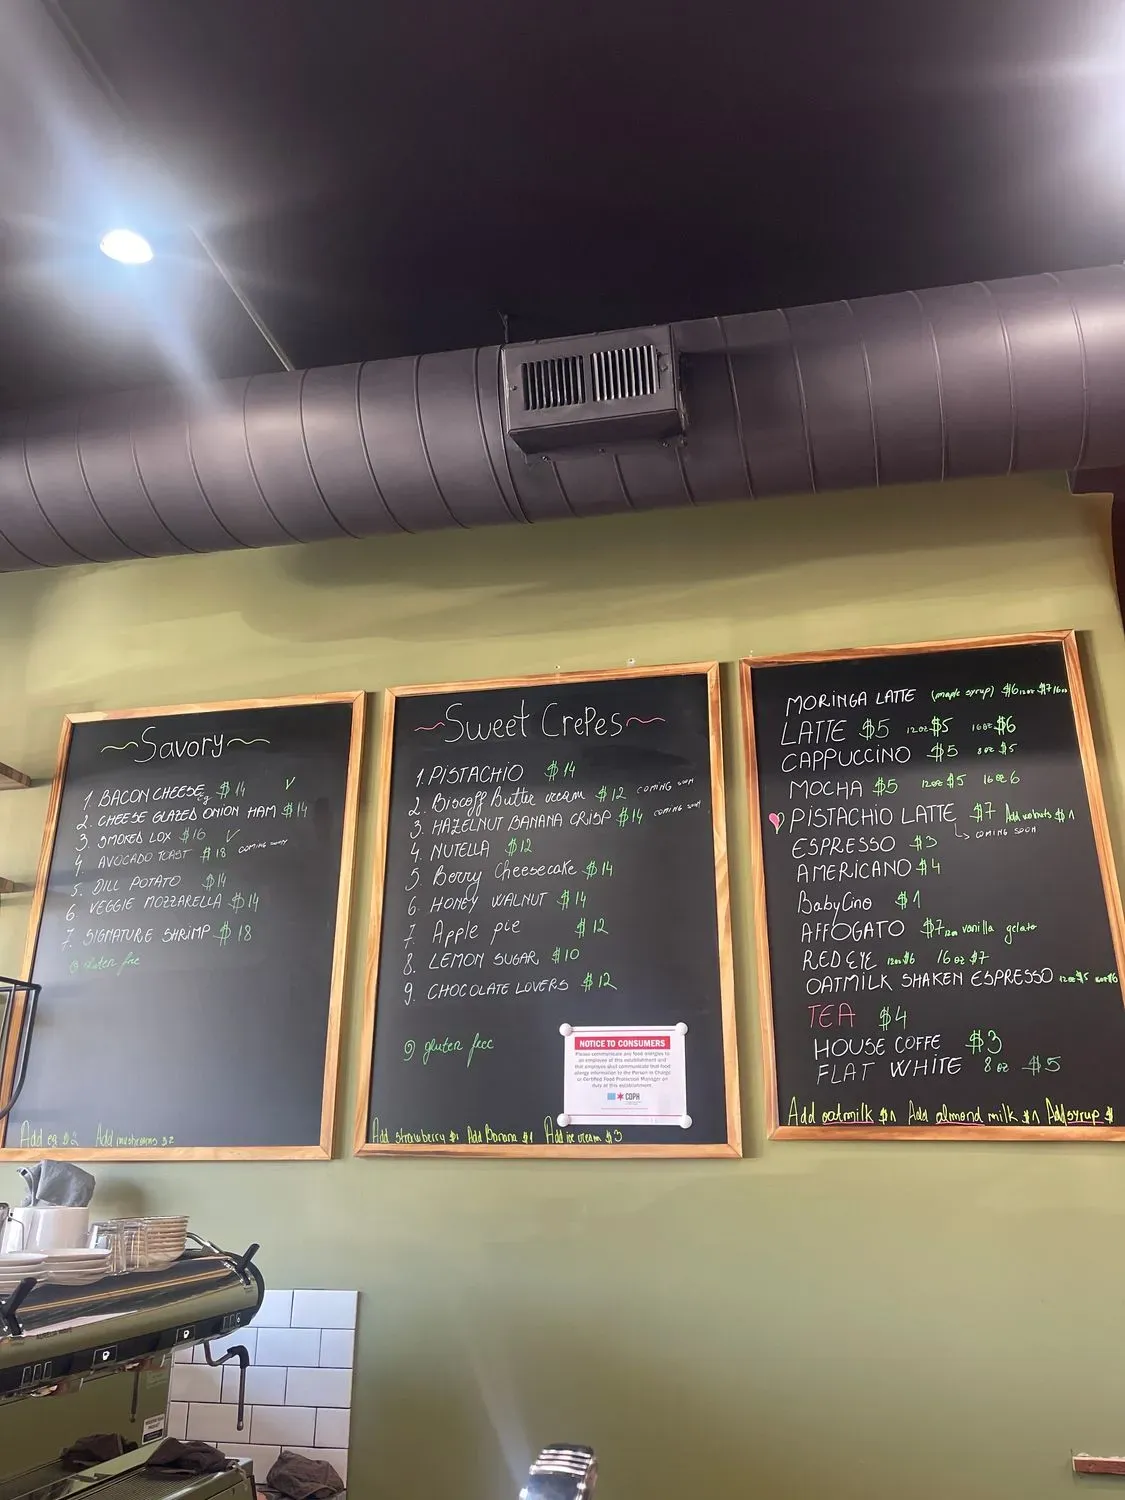 Savory
1. BACON CHEESE $14 V
eg
2. CHEESE GLAZED ONION HAM $14
3. SMOKED LOX $16 V
4. AVOCADO TOAST $18 COMING SOON
5. DILL POTATO $14
6. VEGGIE MOZZARELLA $14
7. SIGNATURE SHRIMP $18
gluten free
Add eg $2 Add mushrooms $2
Sweet CrePes
1. PISTACHIO $14
2. Biscoff Butter cream $12 COMING SOON
3. HAZELNUT BANANA CRISP $14 COMING SOON
4. NUTELLA $12
5. Berry Cheesecake $14
6. HONEY WALNUT $14
7. Apple pie $12
8. LEMON SUGAR $10
9. CHOCOLATE LOVERS $12
gluten free
NOTICE TO CONSUMERS
Please communicate any food allergies to
an employee of this establishment and
that employee shall communicate that food
allergy information to the Person in Charge
or Certified Food Protection Manager on
duty at this establishment.
CDPH
Add strawberry $1 Add Banana $1 Add ice cream $3
MORINGA LATTE (maple syrup) $6 12oz $7 16oz
LATTE $5 12oz $5 16oz $6
CAPPUCCINO $5 8oz $5
MOCHA $5 12oz $5 16oz 6
PISTACHIO LATTE $7 Add walnuts $1
COMING SOON
ESPRESSO $3
AMERICANO $4
BabyCino $1
AFFOGATO $7 12oz vanilla gelato
RED EYE 12oz $6 16oz $7
OATMILK SHAKEN ESPRESSO 12oz $5 16oz $6
TEA $4
HOUSE COFFE $3
FLAT WHITE 8oz $5
Add oatmilk $1 Add almond milk $1 Add syrup $